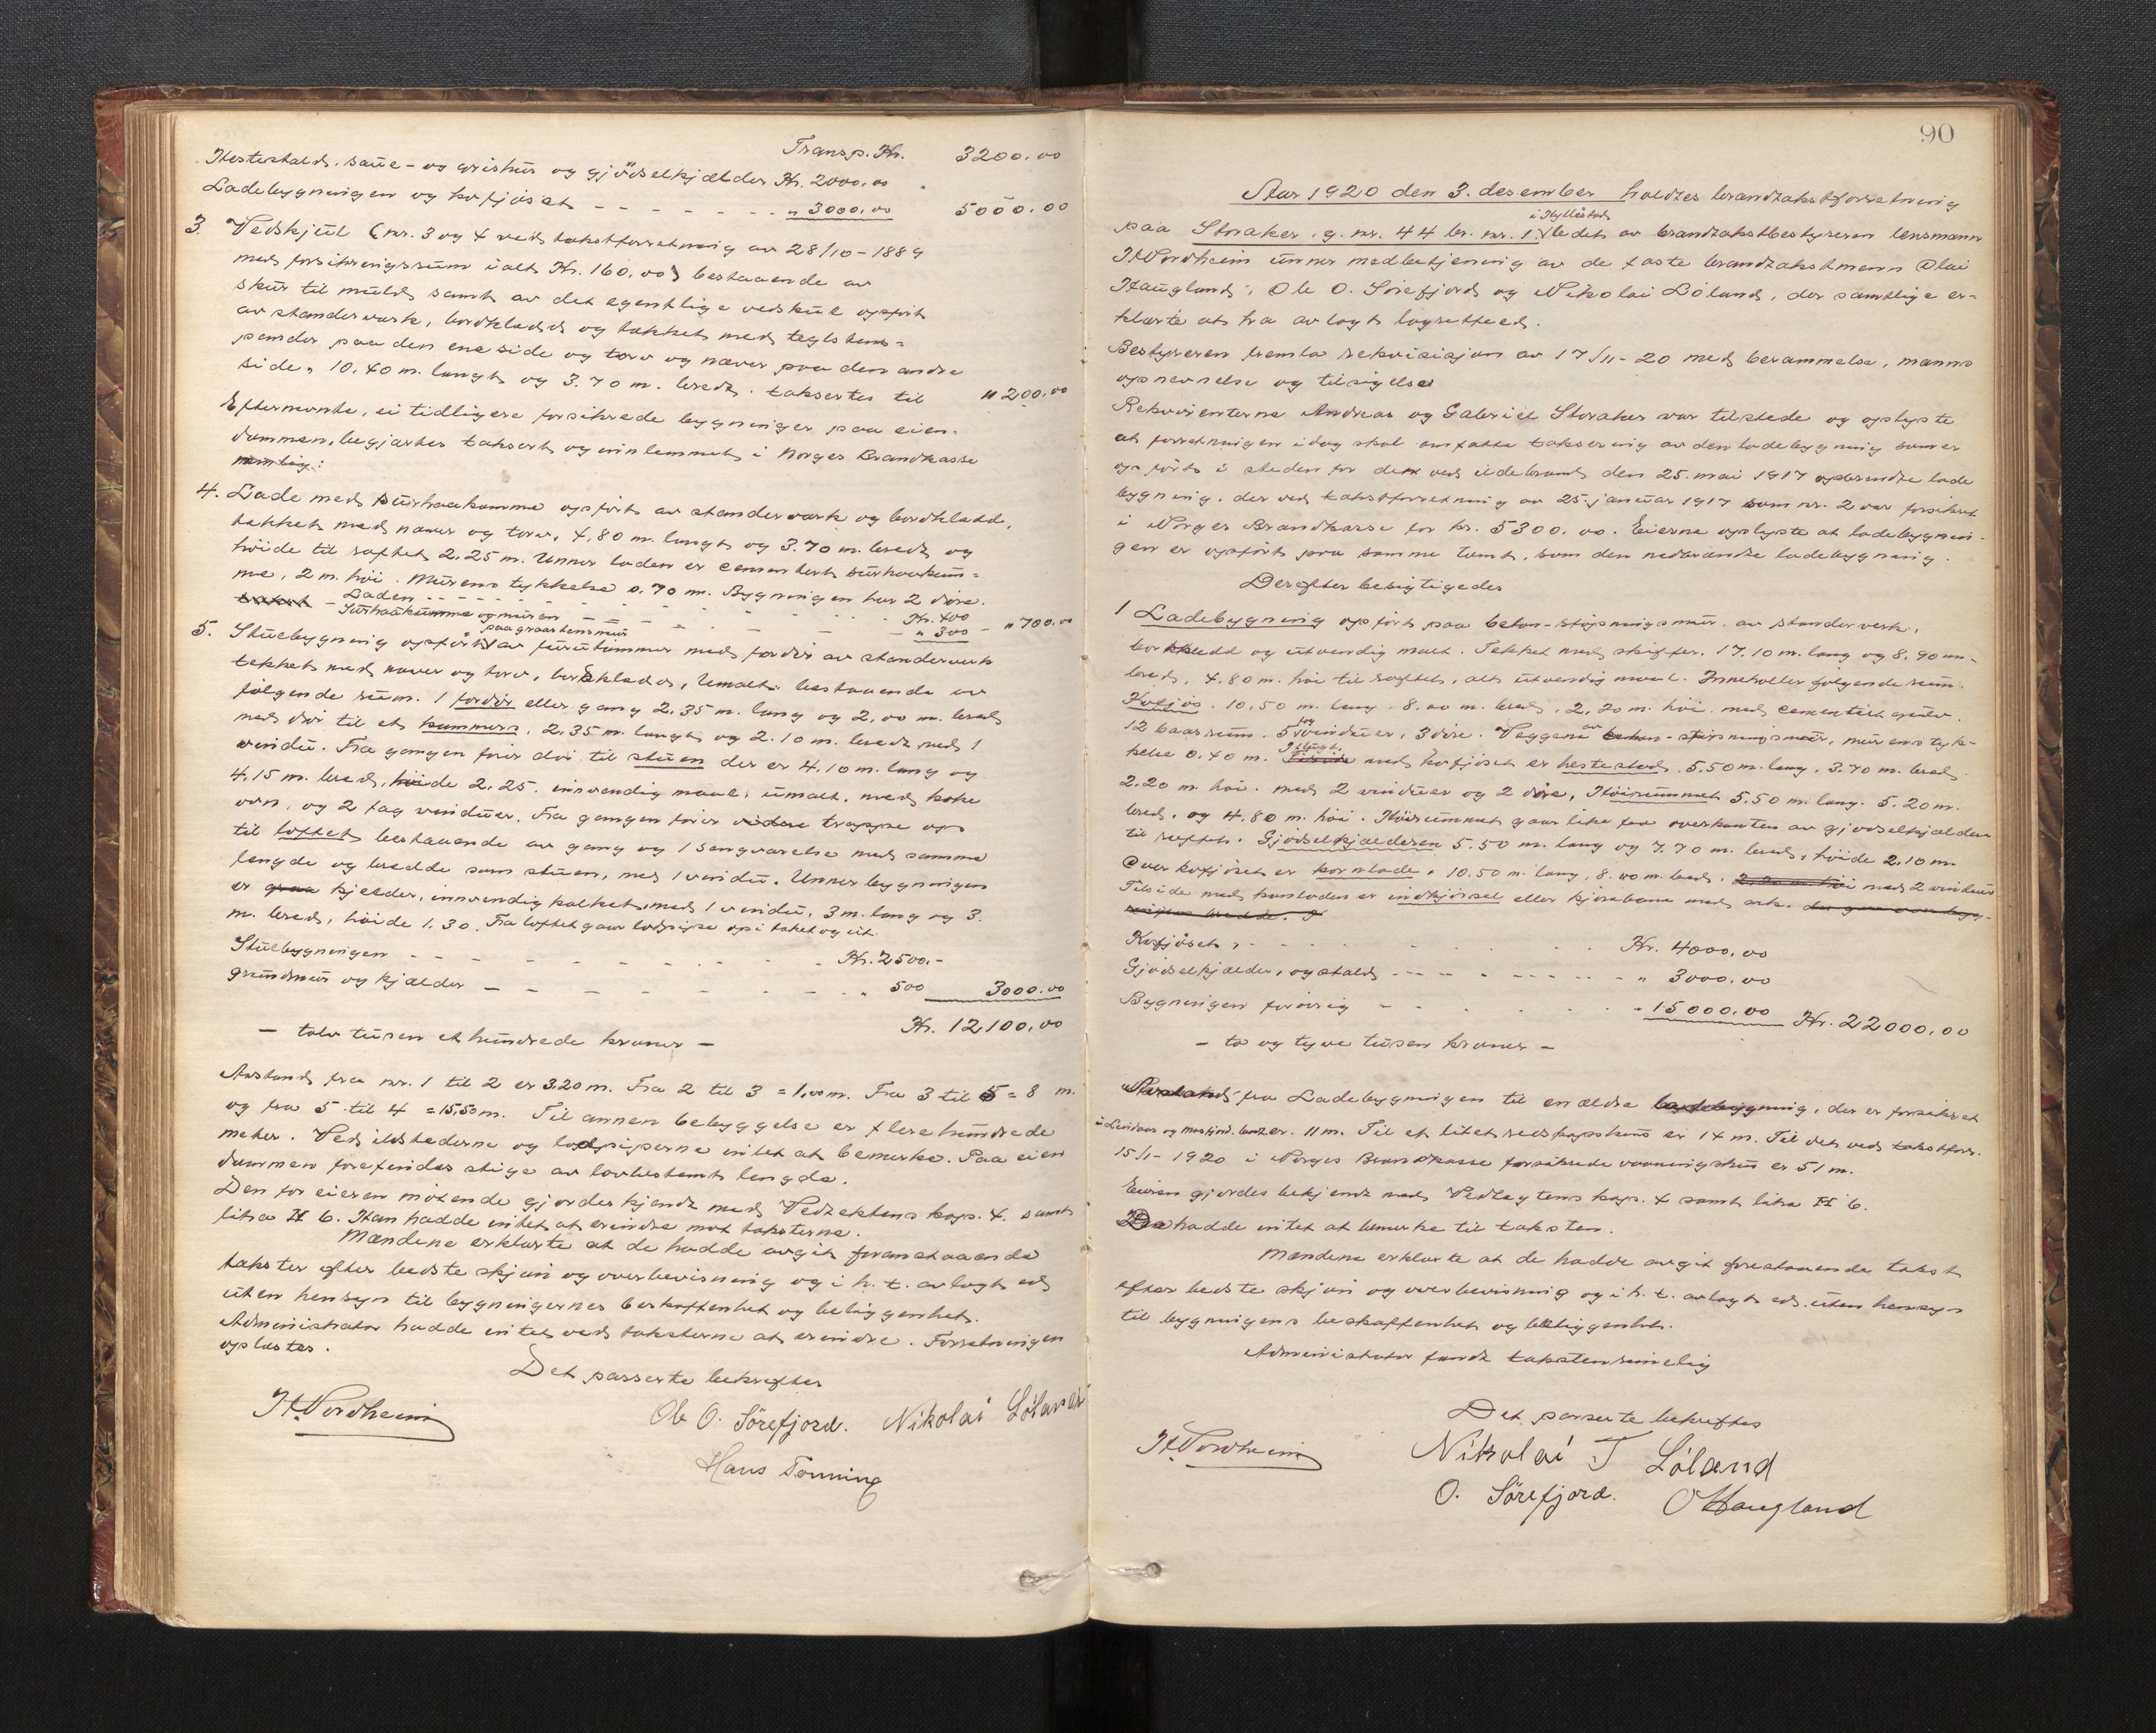 Transp. Kr. 3200.00
Hestestald, saue- og grishus og gjödselkjælder Kr. 2000.00
Ladebygningen og kofjöset - - - - - - - " 3000.00 5000.00
3. Vedskjul (nr. 3 og 4 ved takstforretning av 28/10-1889
med forsikringssum ialt Kr. 160.00) bestaaende av
skur til muld samt av det egentlige vedskul opfört
av standerverk, bordklædd og tækket med teglstens-
pander paa den ene side og torv og næver paa den andre
side, 10.40 m. langt og 3.70 m. bredt. taksertes til " 200.00
Efternevnte, ei tidligere forsikrede bygninger paa eien-
dommen, begjærtes taksert og innlemmet i Norges Brandkasse
nemlig:
4. Lade med surhaakumme opfört av standerverk og bordklædd,
tækket med næver og torv, 4,80 m. langt og 3.70 m. bredt og
höide til raftet 2.25 m. Unner laden er cementert surhaakum-
me, 2 m. höi. Murens tykkelse 0.70 m. Bygningen har 2 döre.
Laden - - - - - - - - Kr. 400
Surhaakumme og muren - - - - - " 300 - " 700.00
5. Stuebygning opfört paa graastensmur av furutömmer med fordör av standerverk
tekket med næver og torv, bordklædd, Umalt. bestaaende av
fölgende rum. 1 fordör eller gang 2.35 m. lang og 2,00 m. bred
med dör til et kammers, 2.35 m. langt og 2.10 m. bredt med 1
vindu. Fra gangen förer dör til stuen der er 4.10 m. lang og
4.15 m. bred, höide 2.25. innvendig maal, umalt. med koke
ovn, og 2 fag vinduer. Fra gangen förer videre trappe op
til loftet bestaaende av gang og 1 sengværelse med samme
lengde og bredde som stuen, med 1 vindu. Unner bygningen
er kjælder, innvendig kalket, med 1 vindu, 3 m. lang og 3.
m. bred, höide 1.30. Fra loftet gaar lodpipe op i taket og ut.
Stuebygningen - - - - - - - - - Kr. 2500.-
grundmur og kjælder - - - - - - - - " 500 3000.00
- tolv tusen et hundrede kroner - Kr. 12,100,00
Avstand fra nr. 1 til 2 er 3.20 m. Fra 2 til 3 = 1,00 m. Fra 3 til 5 = 8 m.
og fra 5 til 4 = 15,50 m. Til annen bebyggelse er flere hundrede
meter. Ved ildstederne og lodpiperne intet at bemerke. Paa eien
dommen forefindes stige av lovbestemt lengde.
Den for eieren mötende gjordes kjendt med Vedtektens kap. 4. samt
litra H 6. Han hadde intet at erindre mot taksterne.
Mændene erklærte at de hadde avgit foranstaaende
takster efter bedste skjön og overbevisning og i h. t. avlagt ed
uten hensyn til bygningernes beskaffenhet og beliggenhet.
Administrator hadde intet ved taksterne at erindre. Forretningen
oplæstes.
Det passerte bekreftes
H. Nordheim Ole O. Sörefjord. Nikolai Löland
Hans Tonning
90
Aar 1920 den 3. desember holdtes brandtakstforretning
paa Storaker, g. nr. 44 br. nr. 1 i Hyllestad ledet av brandtakstbestyreren lensmann
H Nordheim unner medbetjening av de faste brandtakstmenn Olai
Haugland, Ole O. Sörefjord og Nikolai Löland, der samtlige er-
klærte at ha avlagt lagretteed.
Bestyreren fremla rekvisisjon av 17/11-20 med berammelse, manns
opnevnelse og tilsigelse
Rekvirenterne Andreas og Gabriel Storaker var tilstede og oplyste
at forretningen idag skal omfatte taksering av den ladebygning som er
opfört i steden for den ved ildebrand den 25. mai 1917 opbrendte lade
bygning, der ved takstforretning av 25. januar 1917 som nr. 2 var forsikret
i Norges Brandkasse for kr. 5300.00. Eierne oplyste at ladebygnin-
gen er opfört paa samme tomt, som den nedbrændte ladebygning.
Derefter besigtigedes
1 Ladebygning opfört paa beton-stöpningsmur, av standerverk,
bordkledd og utvendig malt. Tekket med skiffer. 17.10 m. lang og 8,90 m.
bred, 4.80 m. höi til raftet, alt utvendig maal. Inneholler fölgende rum:
Kofjös. 10.50 m. lang. 8.00 m. bred, 2,20 m. höi. med cementert gulv.
12 baasrum. 5 fag vinduer, 3 döre. Veggene av beton-stöpningsmur, murens tyk-
kelse 0.40 m. I flugt med kofjöset er hestestald. 5.50 m. lang, 3.70 m. bred.
2.20 m. höi. med 2 vinduer og 2 döre, Höirummet 5.50 m. lang. 5.20 m.
bred, og 4,80 m. höi. Höirummet gaar like fra overkanten av gjödselkjælder
til raftet. Gjödselkjælderen 5.50 m. lang og 7.70 m. bred, höide 2,10 m.
Over kofjöset er kornlade, 10.50 m. lang, 8.00 m. bred, 2,20 m. höi med 2 vinduer
Tilside med kornladen er indkjörsel eller kjörebane med ark.
Kofjöset - - - - - - - - Kr. 4000.00
Gjödselkjælder, og stald - - - - - - - " 3000.00
Bygningen forövrig - - - - - - " 15000.00 Kr. 22000,00
- to og tyve tusen kroner -
Avstand fra Ladebygningen til en ældre ladebygning, der er forsikret
i Lindaas og Masfjord. brandk. er 11 m. Til et litet redskapshus er 14 m. Til det ved takstforr.
15/1-1920 i Norges Brandkasse forsikrede vaaningshus er 51 m.
Eieren gjordes bekjendt med Vedtægtens kap. 4 samt litra H 6.
De hadde intet at bemerke til taksten.
Mændene erklærte at de hadde avgit forestaaende takst
efter bedste skjön og overbevisning og i h. t. avlagt ed. uten hensyn
til bygningens beskaffenhet og beliggenhet.
Administrator fandt taksten rimelig
Det passerte bekreftes
H. Nordheim Nikolai T Löland
O. Sörefjord. O Haugland